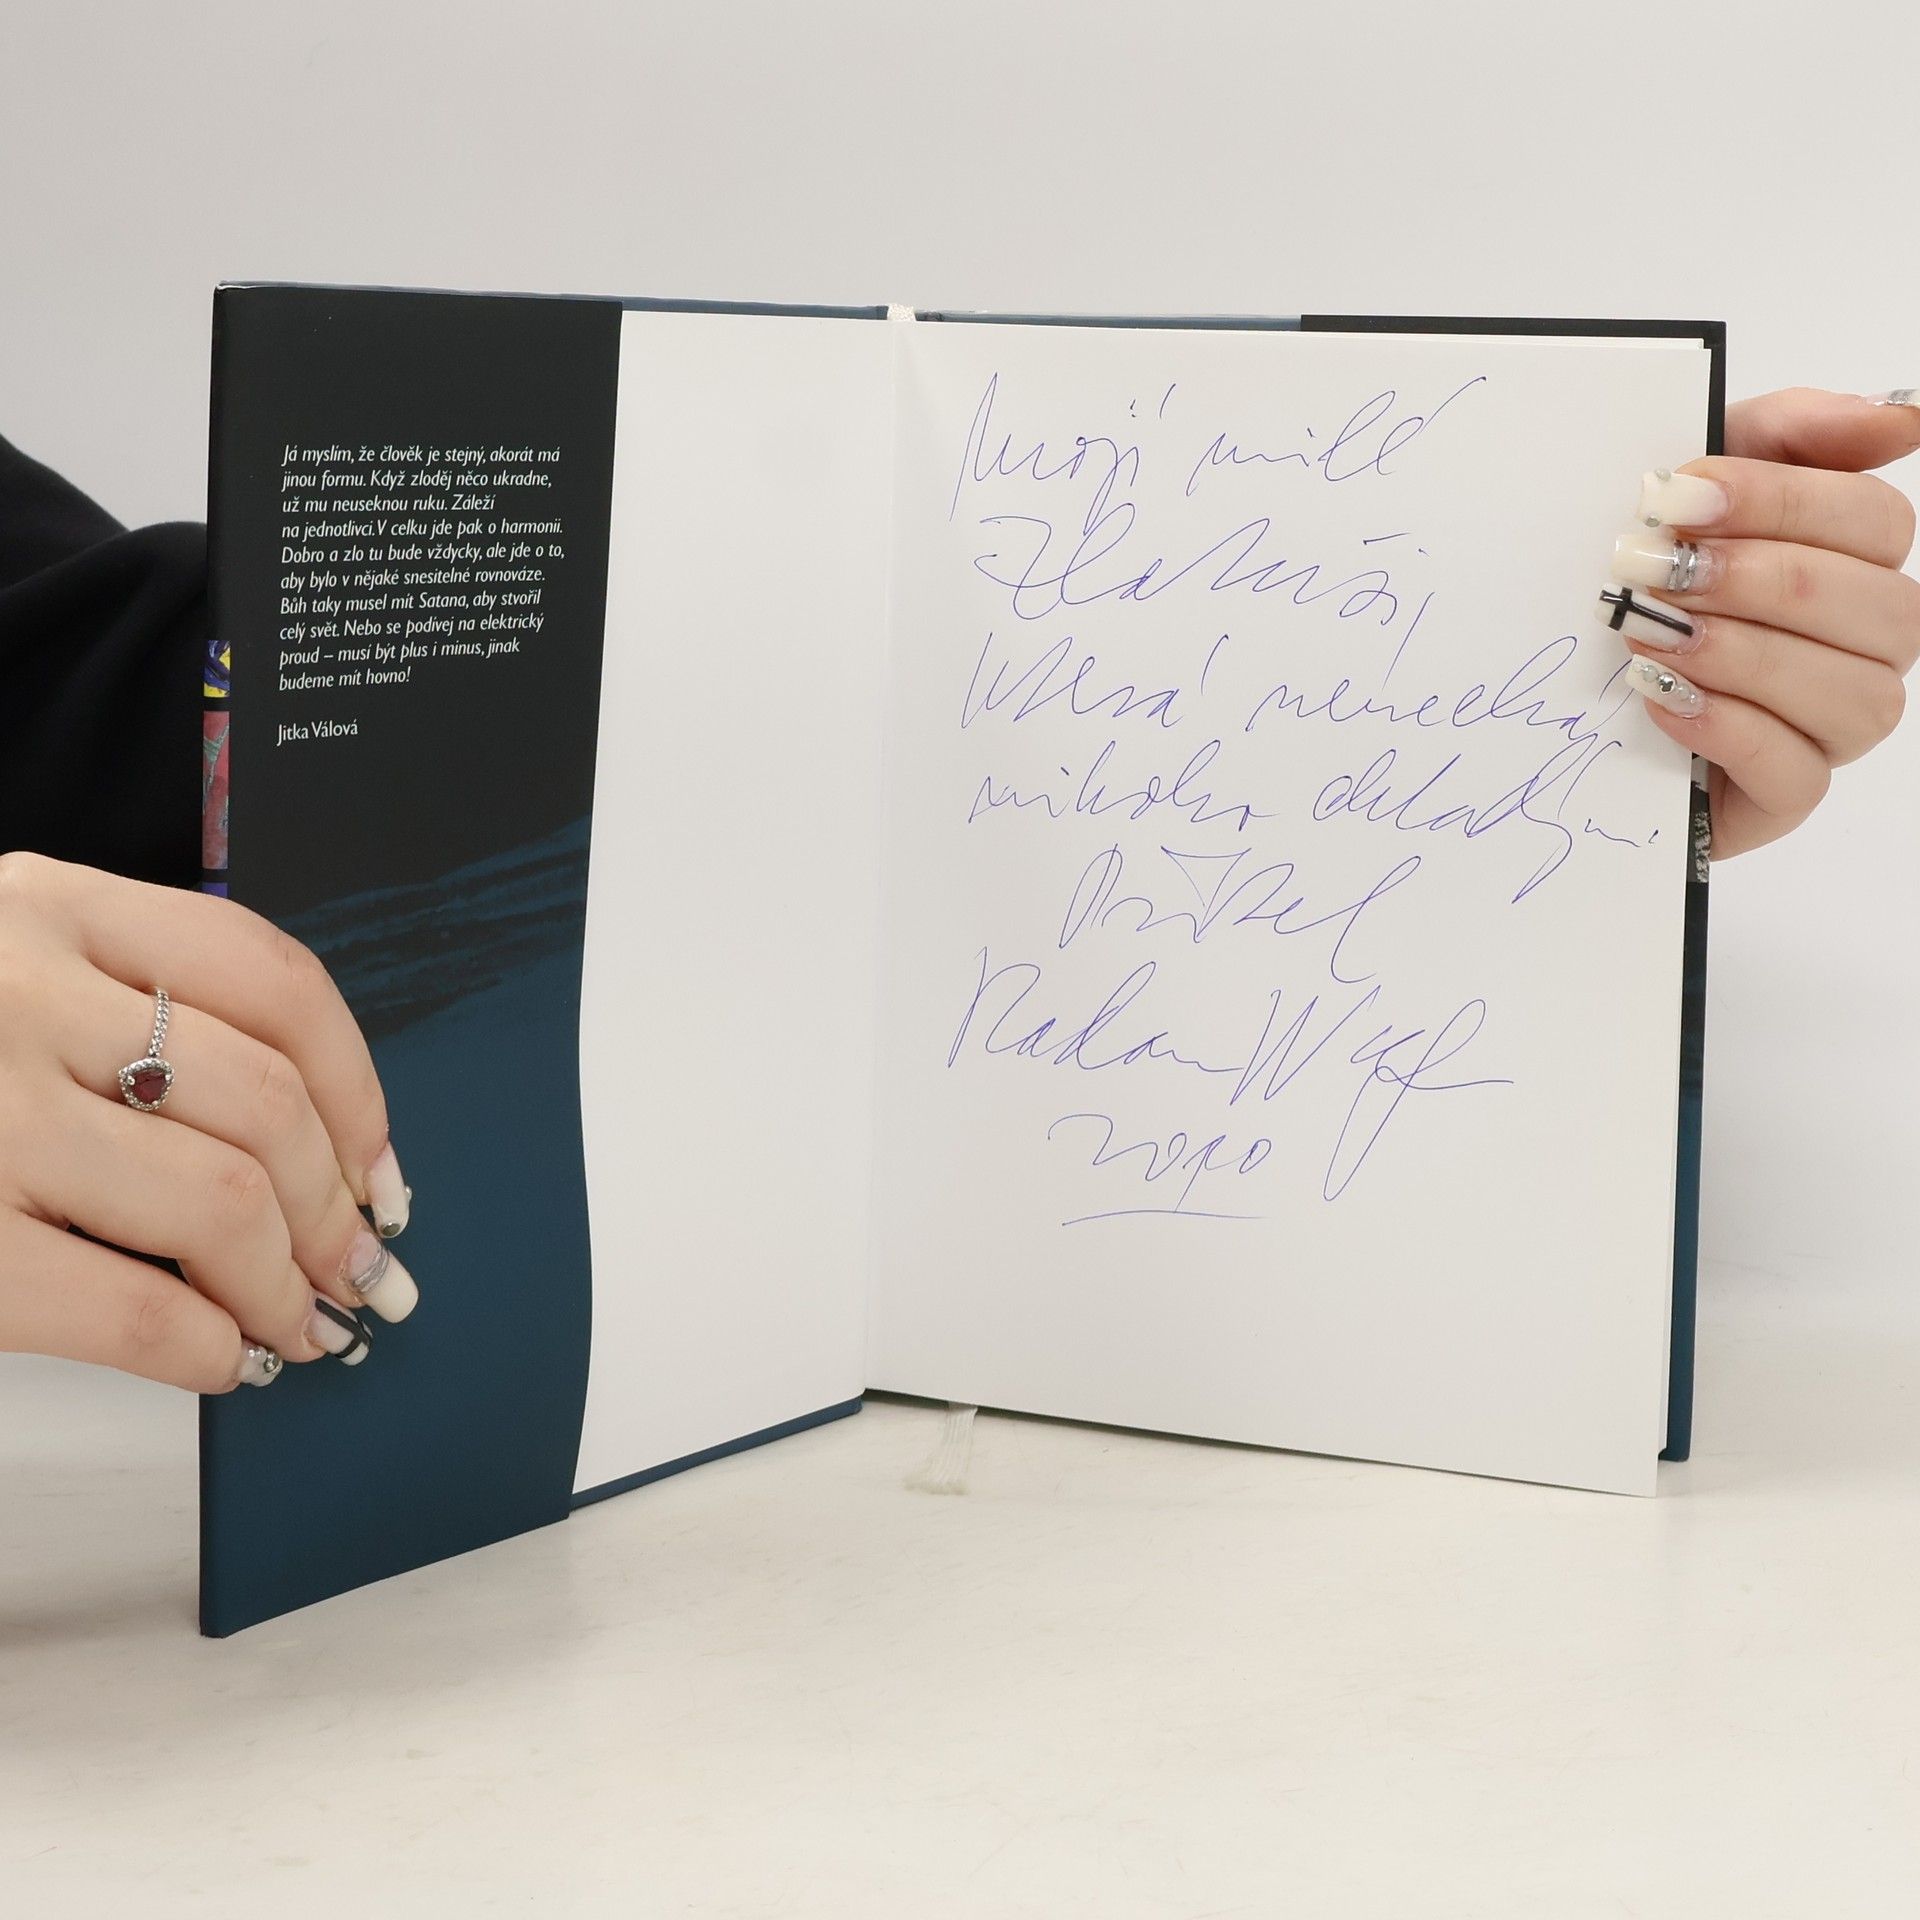 Já myslím, že člověk je stejný, akorát má
jinou formu. Když zloděj něco ukradne,
už mu neuseknou ruku. Záleží
na jednotlivci. V celku jde pak o harmonii.
Dobro a zlo tu bude vždycky, ale jde o to,
aby bylo v nějaké snesitelné rovnováze.
Bůh taky musel mít Satana, aby stvořil
celý svět. Nebo se podívej na elektrický
proud – musí být plus i minus, jinak
budeme mít hovno!
Jitka Válová
Mojí milé
Zlatuši,
která nenechá
nikoho chladným.
Radan Wagner
2010